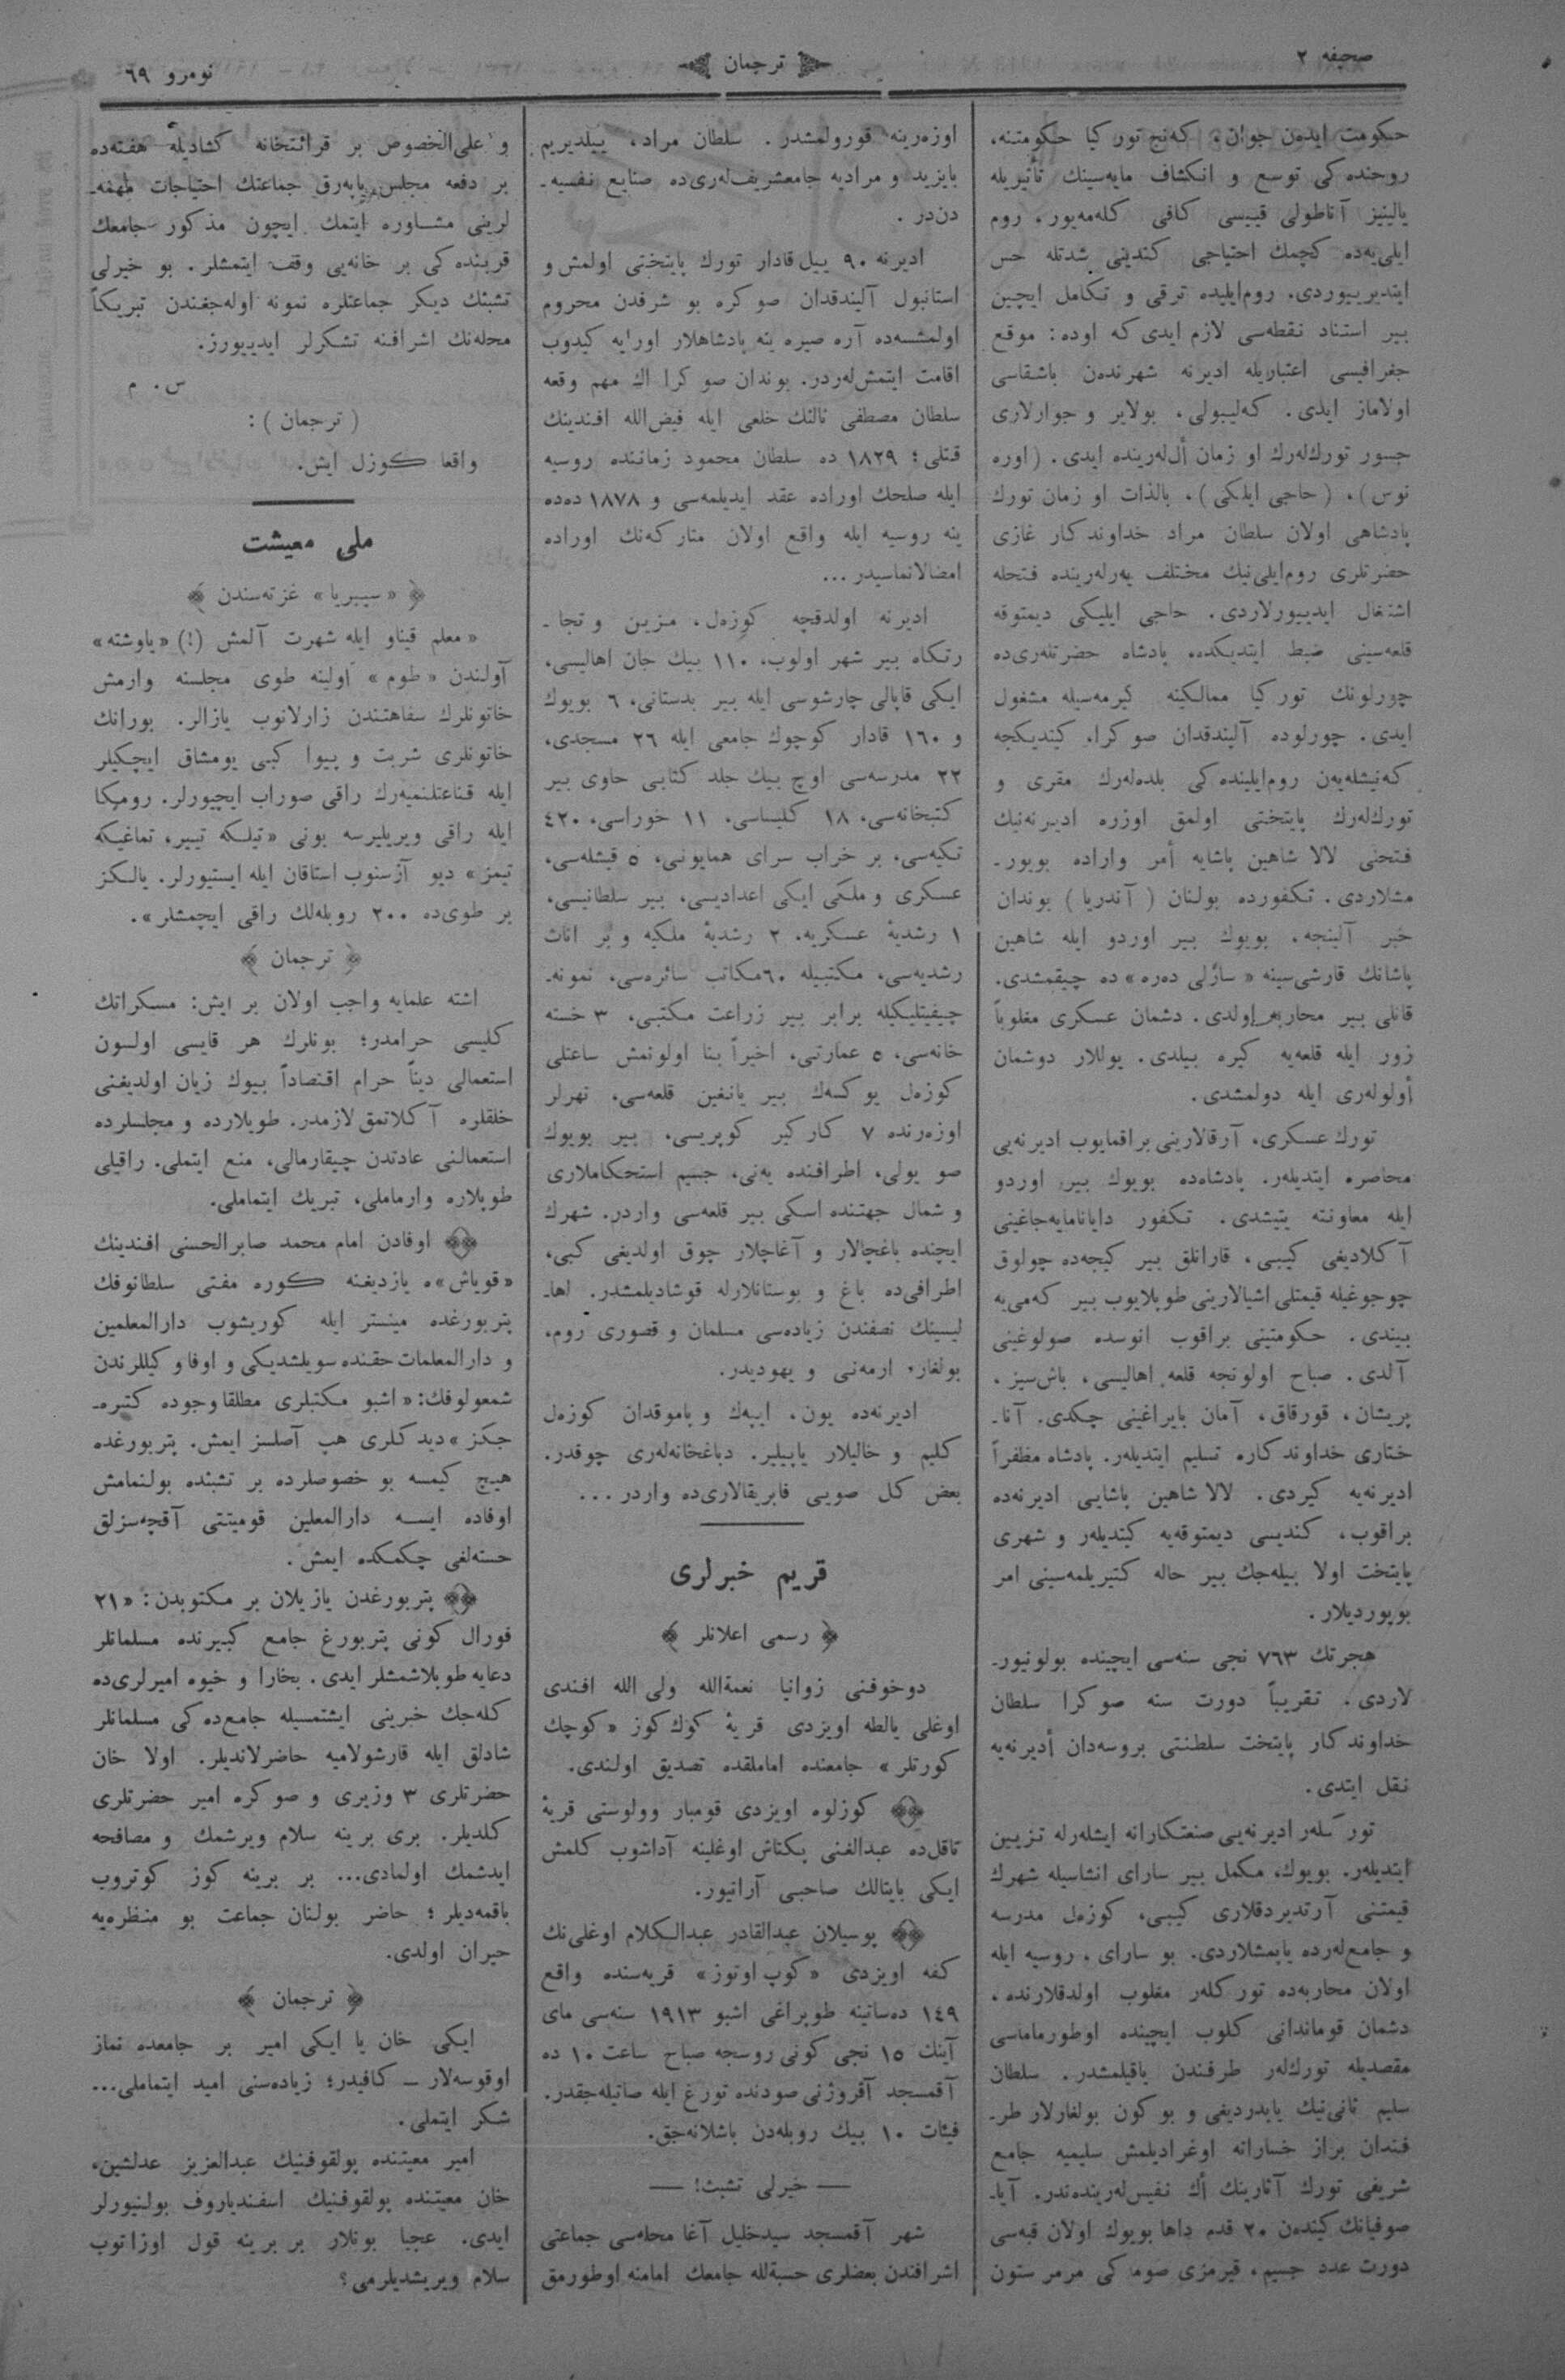 صحیفه ٢
ترجمان
نومرو ٦٩
حکومت ایدەن جوان، کەنج تورکیا حکومتنه،
روحنده‌کی توسع و انکشاف مایەسینك تأثیریله
یالینیز آناطولی قییسی کافی کلەمەیور، روم
ایلی‌یەده کچمك احتیاجی کندینی شدتله حس
ایتدیریییوردی. روم‌ایلیده ترقی و تکامل ایچین
بیر استناد نقطەسی لازم ایدی که اوده: موقع
جغرافیسی اعتباریله ادیرنه شهرندەن باشقاسی
اولاماز ایدی. کەلیبولی، بولایر و جوارلاری
جسور تورك‌لەرك او زمان أل‌لەرینده ایدی. (اوره
نوس)، (حاجی ایلکی)، بالذات او زمان تورك
پادشاهی اولان سلطان مراد خداوندکار غازی
حضرتلری روم‌ایلی‌نیك مختلف یەرلەرینده فتحله
اشتغال ایدییورلاردی. حاجی ایلیکی دیمتوقه
قلعەسینی ضبط ایتدیکده، پادشاه حضرتلەری‌ده
چورلونك تورکیا ممالکینه کیرمەسیله مشغول
ایدی. چورلوده آلیندقدان صوکرا، کیتدیکجه
کەنیشلەیەن روم‌ایلیندەکی بلدەلەرك مقری و
تورك‌لەرك پایتختی اولمق اوزره ادیرنەنیك
فتحنی لالا شاهین پاشایه أمر واراده بویور-
مشلاردی. تکفورده بولنان (آندریا) بوندان
خبر آلینجه، بویوك بیر اوردو ایله شاهین
پاشانك قارشی‌سینه «سازلی دەره» ده چیقمشدی.
قانلی بیر محاربه اولدی. دشمان عسکری مغلوباً
زور ایله قلعەیه کیره بیلدی. یوللار دوشمان
أولولەری ایله دولمشدی.
تورك عسکری، آرقالارینی براقمایوب ادیرنەیی
محاصره ایتدیلەر. پادشاەده بویوك بیر اوردو
ایله معاونته یتیشدی. تکفور دایانامایەجاغینی
آکلادیغی کیبی، قارانلق بیر کیجەده چولوق
چوجوغیله قیمتلی اشیالارینی طوپلایوب بیر کەمی‌یه
بیندی. حکومتینی براقوب انوسده صولوغینی
آلدی. صباح اولونجه قلعه اهالیسی، باش‌سیز،
پریشان، قورقاق، آمان بایراغینی چکدی. آنا-
ختاری خداوندکاره تسلیم ایتدیلەر. پادشاه مظفراً
ادیرنەیه کیردی. لالا شاهین پاشایی ادیرنەده
براقوب، کندیسی دیمتوقەیه کیتدیلەر و شهری
پایتخت اولا بیلەجك بیر حاله کتیریلمەسینی امر
بویوردیلار.
هجرتك ٧٦٣ نجی سنەسی ایچینده بولونیور-
لاردی. تقریباً دورت سنه صوکرا سلطان
خداوندکار پایتخت سلطنتی بروسەدان أدیرنەیه
نقل ایتدی.
تورکلەر ادیرنەیی صنعتکارانه ایشلەرله تزیین
ایتدیلەر. بویوك، مکمل بیر سارای انشاسیله شهرك
قیمتنی آرتدیردقلاری کیبی، کوزەل مدرسه
و جامع‌لەرده یاپمشلاردی. بو سارای، روسیه ایله
اولان محاربەده تورکلەر مغلوب اولدقلارنده،
دشمان قوماندانی کلوب ایچینده اوطورماماسی
مقصدیله تورك‌لەر طرفندن یاقیلمشدر. سلطان
سلیم ثانی‌نیك یاپدردیغی و بوکون بولغارلار طر-
فندان براز خساراته اوغرادیلمش سلیمیه جامع
شریفی تورك آثارینك أك نفیس‌لەریندەندر. آیا-
صوفیانك کیندەن ٢٠ قدم داها بویوك اولان قبەسی
دورت عدد جسیم، قیرمزی صوماکی مرمر ستون
اوزەرینه قورولمشدر. سلطان مراد، ییلدیریم
بایزید و مرادیه جامعشریف‌لەری‌ده صنایع نفسیه-
دن‌در.
ادیرنه ٩٠ ییل قادار تورك پایتختی اولمش و
استانبول آلیندقدان صوکره بو شرفدن محروم
اولمشسەده آره صیره ینه پادشاهلار اورایه کیدوب
اقامت ایتمش‌لەردر. بوندان صوکرا اك مهم وقعه
سلطان مصطفی ثالثك خلعی ایله فیض‌الله افندینك
قتلی؛ ١٨٢٩ ده سلطان محمود زماننده روسیه
ایله صلحك اوراده عقد ایدیلمەسی و ١٨٧٨ ده‌ده
ینه روسیه ایله واقع اولان متارکەنك اوراده
امضالانماسیدر...
ادیرنه اولدقچه کوزەل، مزین و تجا-
رتکاه بیر شهر اولوب، ١١٠ بیك جان اهالیسی،
ایکی قاپالی چارشوسی ایله بیر بدستانی، ٦ بویوك
و ١٦٠ قادار کوچوك جامعی ایله ٢٦ مسجدی،
٢٢ مدرسەسی اوچ بیك جلد کتابی حاوی بیر
کتبخانەسی، ١٨ کلیساسی، ١١ خوراسی، ٤٢٠
تکیەسی، بر خراب سرای همایونی، ٥ قیشلەسی،
عسکری و ملکی ایکی اعدادیسی، بیر سلطانیسی،
١ رشدیهٔ عسکریه، ٢ رشدیهٔ ملکیه و بر اناث
رشدیەسی، مکتبیله ٦٠ مکاتب سائرەسی، نمونه-
چیفیتلیکیله برابر بیر زراعت مکتبی، ٣ خسته
خانەسی، ٥ عمارتی، اخیراً بنا اولونمش ساعتلی
کوزەل یوکسەك بیر یانغین قلعەسی، نهرلر
اوزەرنده ٧ کارکیر کوپریسی، بیر بویوك
صو یولی، اطرافنده یەنی، جسیم استحکاملاری
و شمال جهتنده اسکی بیر قلعەسی واردر. شهرك
ایچنده باغچالار و آغاچلار چوق اولدیغی کبی،
اطرافی‌ده باغ و بوستانلارله قوشادیلمشدر. اها-
لیسینك نصفندن زیادەسی مسلمان و قصوری روم،
بولغار، ارمەنی و یهودیدر.
ادیرنەده یون، ایپەك و پاموقدان کوزەل
کلیم و خالیلار یاپیلیر. دباغخانەلەری چوقدر.
بعض کل صویی فابریقالاری‌ده واردر...
قریم خبرلری
رسمی اعلانلر
دوخوفنی زوانیا نعمة‌الله ولی الله افندی
اوغلی یالطه اویزدی قریهٔ کوك‌کوز «کوچك
کورتلر» جامعنده اماملقده تصدیق اولندی.
کوزلوه اویزدی قومبار وولوستی قریهٔ
تاقل‌ده عبدالغنی بکتاش اوغلینه آداشوب کلمش
ایکی بایتالك صاحبی آرانیور.
پوسیلان عبدالقادر عبدالکلام اوغلی‌نك
کفه اویزدی «کوپ اوتوز» قریەسنده واقع
١٤٩ دەساتینه طوپراغی اشبو ١٩١٣ سنەسی مای
آینك ١٥ نجی کونی روسجه صباح ساعت ١٠ ده
آقمسجد آقروژنی صودنده تورغ ایله صاتیلەجقدر.
فیئات ١٠ بیك روبلەدن باشلانەجق.
— خیرلی تشبث! —
شهر آقمسجد سیدخلیل آغا محلەسی جماعتی
اشرافندن بعضلری حسبة‌لله جامعك امامنه اوطورمق
و علی‌الخصوص بر قرائتخانه کشادیله هفتەده
بر دفعه مجلس یاپەرق جماعتك احتیاجات مهمه-
لرینی مشاوره ایتمك ایچون مذکور جامعك
قربنده‌کی بر خانەیی وقف ایتمشلر. بو خیرلی
تشبثك دیکر جماعتلره نمونه اولەجغندن تبریکاً
محلەنك اشرافنه تشکرلر ایدییورز.
س. م
(ترجمان):
واقعا کوزل ایش.
ملی معیشت
«سیبریا» غزتەسندن
«معلم قیناو ایله شهرت آلمش (!) «یاوشته»
آولندن «طوم» اولینه طوی مجلسنه وارمش
خاتونلرك سفاهتندن زارلانوب یازالر. بورانك
خاتونلری شربت و پیوا کبی یومشاق ایچکیلر
ایله قناعتلنمیەرك راقی صوراب ایچیورلر. رومیکا
ایله راقی ویریلیرسه بونی «تیلکه تییر، تماغیکه
تیمز» دیو آزسنوب استاقان ایله ایستیورلر. یالکز
بر طوی‌ده ٢٠٠ روبلەلك راقی ایچمشلر».
ترجمان
اشته علمایه واجب اولان بر ایش: مسکراتك
کلیسی حرامدر؛ بونلرك هر قایسی اولسون
استعمالی دیناً حرام اقتصاداً بیوك زیان اولدیغنی
خلقلره آکلاتمق لازمدر. طویلارده و مجلسلرده
استعمالنی عادتدن چیقارمالی، منع ایتملی. راقیلی
طویلاره وارماملی، تبریك ایتماملی.
اوفادن امام محمد صابر الحسنی افندینك
«قویاش»ه یازدیغنه کوره مفتی سلطانوفك
پتربورغده مینستر ایله کوریشوب دارالمعلمین
و دارالمعلمات حقنده سویلشدیکی و اوفا وکیللرندن
شمعولوفك: «اشبو مکتبلری مطلقا وجوده کتیره-
جکز» دیدکلری هپ آصلسز ایمش. پتربورغده
هیچ کیمسه بو خصوصلرده بر تشبثده بولنمامش
اوفاده ایسه دارالمعلین قومیتتی آقچەسزلق
خستەلغی چکمکده ایمش.
پتربورغدن یازیلان بر مکتوبدن: «٢١
فورال کونی پتربورغ جامع کبیرنده مسلمانلر
دعایه طوپلاشمشلر ایدی. بخارا و خیوه امیرلری‌ده
کلەجك خبرینی ایشتمسیله جامع‌ده‌کی مسلمانلر
شادلق ایله قارشولامیه حاضرلاندیلر. اولا خان
حضرتلری ٣ وزیری و صوکره امیر حضرتلری
کلدیلر. بری برینه سلام ویرشمك و مصافحه
ایدشمك اولمادی... بر برینه کوز کوتروب
باقمەدیلر؛ حاضر بولنان جماعت بو منظرەیه
حیران اولدی.
ترجمان
ایکی خان یا ایکی امیر بر جامعده نماز
اوقوسەلار — کافیدر؛ زیادەسنی امید ایتماملی...
شکر ایتملی.
امیر معیتنده پولقوفنیك عبدالعزیز عدلشین،
خان معیتنده پولقوفنیك اسفندیاروف بولنیورلر
ایدی. عجبا بونلار بر برینه قول اوزاتوب
سلام ویریشدیلرمی؟